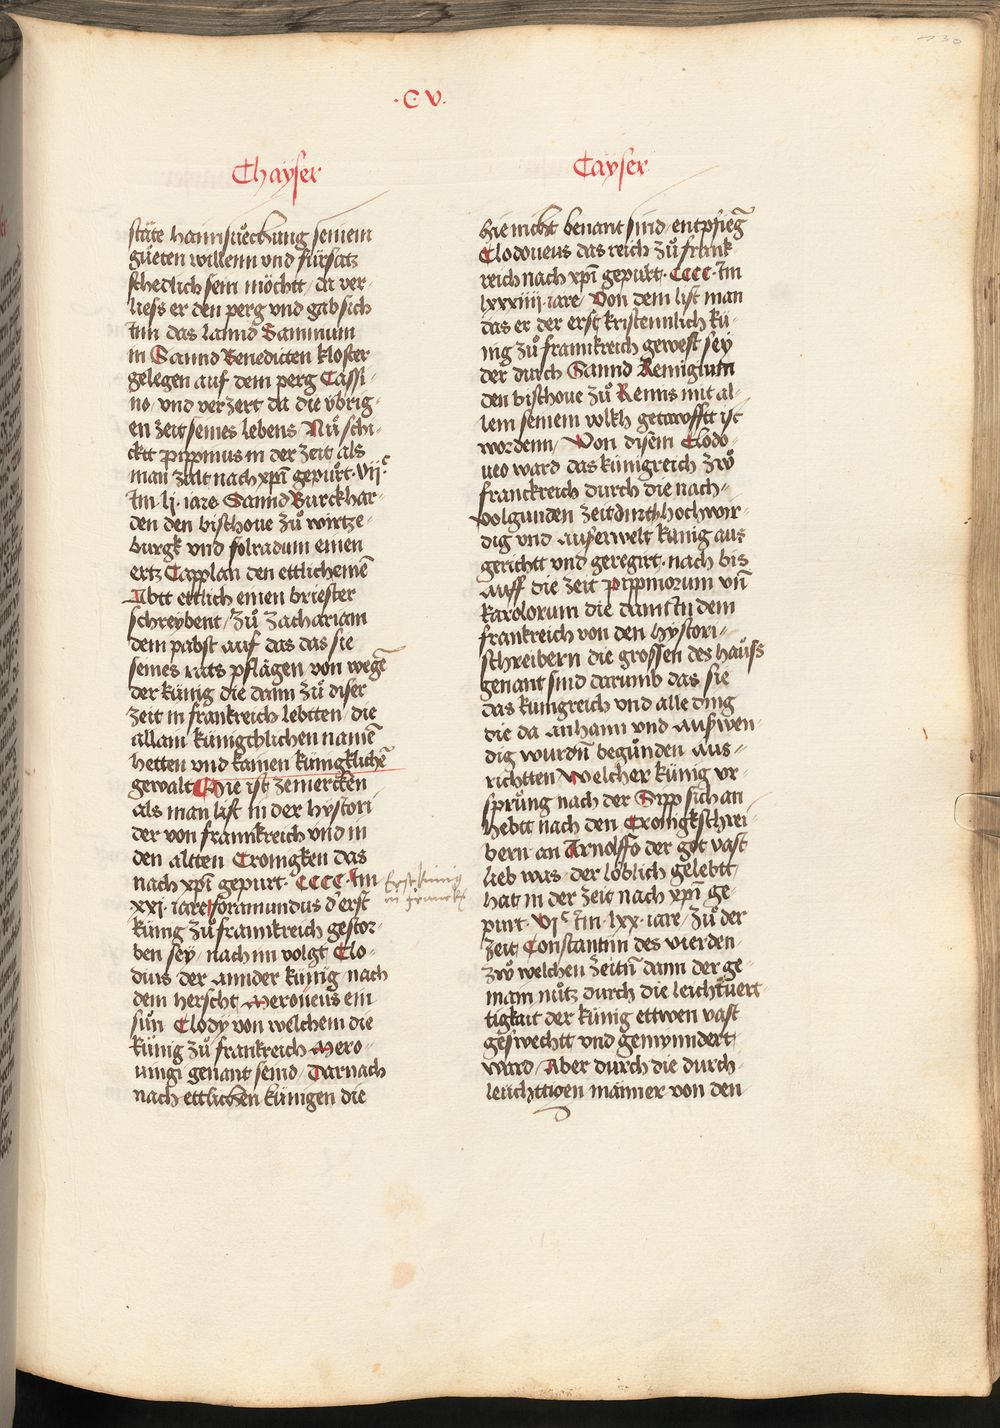 130
·C·V·
Chayser
stäte haimsuͤchung seinem
guͤeten willenn vnd fürsatz
schedlich sein möchtt / da ver-
liess er den perg vnd gab sich
Inn das lannd Samnium
in Sannd Benedicten kloster
gelegen auf dem perg Cassi-
no / vnd verzert da die vbrig-
en zeit seines lebens / Nuͤ schi-
cktt Pippinus in der zeit als
man zalt nach xpi͞ gepuͤrt · vijc
Im · lj · iare · Sannd Burckhar-
den den bischoue zuͤ wirtze-
burgk vnd folradum einen
ertz Capplan den ettlich einē
Abtt ettlich einen briester
schreybent / zuͤ zachariam
dem pabst auf das das sie
seines rats pflägen von wegē
der künig die dann zuͤ diser
zeit in frankreich lebtten / die
allain künigchlichen namē
hetten vnd kainen künigklichē
gewalt Hie ist zemercken
als man list in der hystori
der von frannkreich vnd in
den altten Cronigken das
nach xpi͞ gepurt · CCCC · Im
xxj · iare foramundus d'erst
künig zuͤ frannkreich gestor-
ben sey / nach im volgt Clo-
dius der annder künig / nach
dem herscht Meroueus ein
suͤn Clody von welchem die
künig zuͤ frankreich Mero-
uingi genant seind / Darnach
nach ettlichen künigen die
Erst künig
in franckr
Cayser
hie nicht benant sind / entpfieg̅
Clodoueus das reich zuͤ frank-
reich nach xpi͞ gepurt · CCCC · Im
lxxxiiij · iare / Von dem list man
das er der erst kristennlich kü-
nig zuͤ frannkreich gewest sey
der durch Sannd Remigium
den bischoue zuͤ Remis mit al-
lem seinem volkh getawfftt ist
wordenn / Von disem Clodo-
ueo ward das künigreich zwͦ
franckreich durch die nach-
volgunden zeit durch hochwir-
dig vnd auserwelt künig aus
gerichtt vnd geregirt · nach bis
auff die zeit Pippinorum vn̅
karolorum die dann In dem
frankreich von den hystori-
schreibern die grossen des haüss
genant sind darumb das sie
das künigreich vnd alle ding
die da anhann vnd auswen-
dig wurdn̄ begunden aus-
richtten Welcher künig vr-
sprüng nach der Sipp sich an
hebtt nach den Cronigkschrei-
bern an Arnolffo der got vast
lieb was / der löblich gelebtt
hat in der zeit nach xpi͞ ge-
purt · vjc · Im · lxx · iare / zuͤ der
zeit Constantin des vierden
zwͦ welchen zeitn̄ dann der ge-
main nuͤtz durch die leichtuert-
tigkait der künig ettwen vast
geswechtt vnd gemynndert
ward / Aber durch die durch-
leuchttigen männer von den